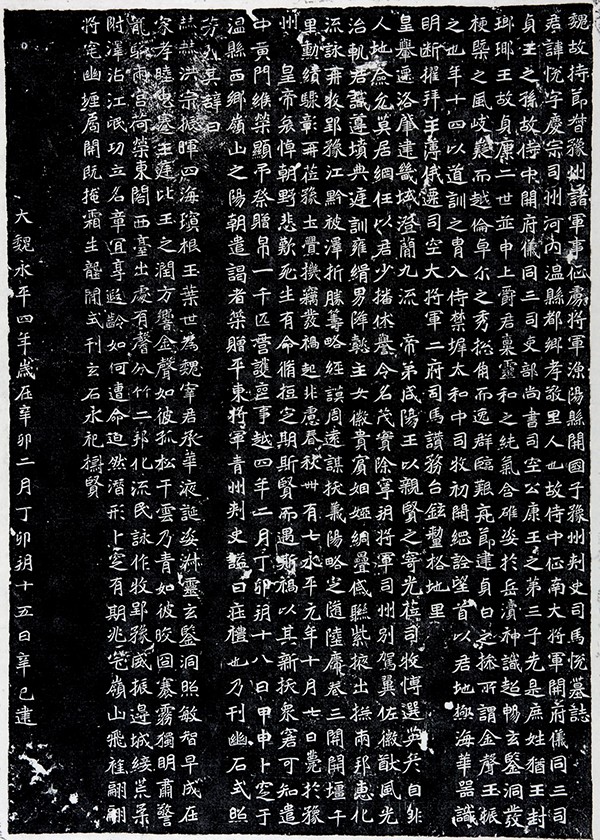 魏故持節督豫州諸軍事征虜將軍漁陽縣開國子豫州刺史司馬悅墓誌
君諱悅字慶宗司州河內溫縣都鄉孝敬里人也故侍中征南大將軍開府儀同三司
貞王之孫故侍中開府儀同三司吏部尚書司空公康王之第三子先是庶姓猶王封
琅琊王故貞康二世並申上爵君稟靈和之純氣含雄姿於岳瀆神識超暢玄鑒洞發
梗槩之風岐嶷而越倫卓尒之秀総角而逸群臨艱亮節建貞白之操所謂金聲玉振
之也年十四以道訓之胄入侍禁墀太和中司牧初開綱詮望首以君地極海華器識
明斷擢拜主簿俄遷司空大將軍二府司馬讚務台鉉釐格地里
皇轝遷洛肇建畿域澄簡九流帝弟咸陽王以親賢之寄光莅司牧博選英彥自非
人地僉允莫居綱任以君少播休譽令名茂實除寧朔將軍司州別駕翼佐徽猷風光
治軌君識遵墳典庭訓雍緝男降懿主女徽貴賓姻婭綢疊戚聯紫掖出撫兩邦惠化
流詠再牧郢豫江黔被澤折勝籌略經謨周遠謀扶義陽略之隨陸席卷三關開壃千
里勳績驟彰再莅豫土釁揆竊發禍起非慮春秋卌有七永平元年十月七日薨於豫
州皇帝哀悼朝野悲歎死生有命脩短定期斯賢而遇斯禍以其新扶衆窘可知遣
中黃門緱榮顯弔祭贈帛一千匹營護喪事越四年二月丁卯朔十八日甲申卜窆于
溫縣西鄉嶺山之陽朝遣謁者策贈平東將軍青州刺史謚曰莊禮也乃刊幽石式照
芳烈其辭曰
赫赫洪宗振暉四海瓊根玉葉世為魏宰君承華液誕姿淑靈玄鑒洞照敏智早成在
家孝睦忠蹇王庭比玉之潤方響金聲如彼孤松干雲乃青如彼皎回褰霧獨明肅警
龍驂兩宮荷榮東閤西臺出處有聲分竹二邦化流民詠作牧郢豫威振邊城綏荒柔
附澤沾江氓功立名章宜享遐齡如何遭命迄然潛形卜窆有期兆宅嶺山飛旌翩翩
將宅幽壥扃開旣掩霜生龍閞式刊玄石永祀擒賢
大魏永平四年歲在辛卯二月丁卯朔十五日辛巳建